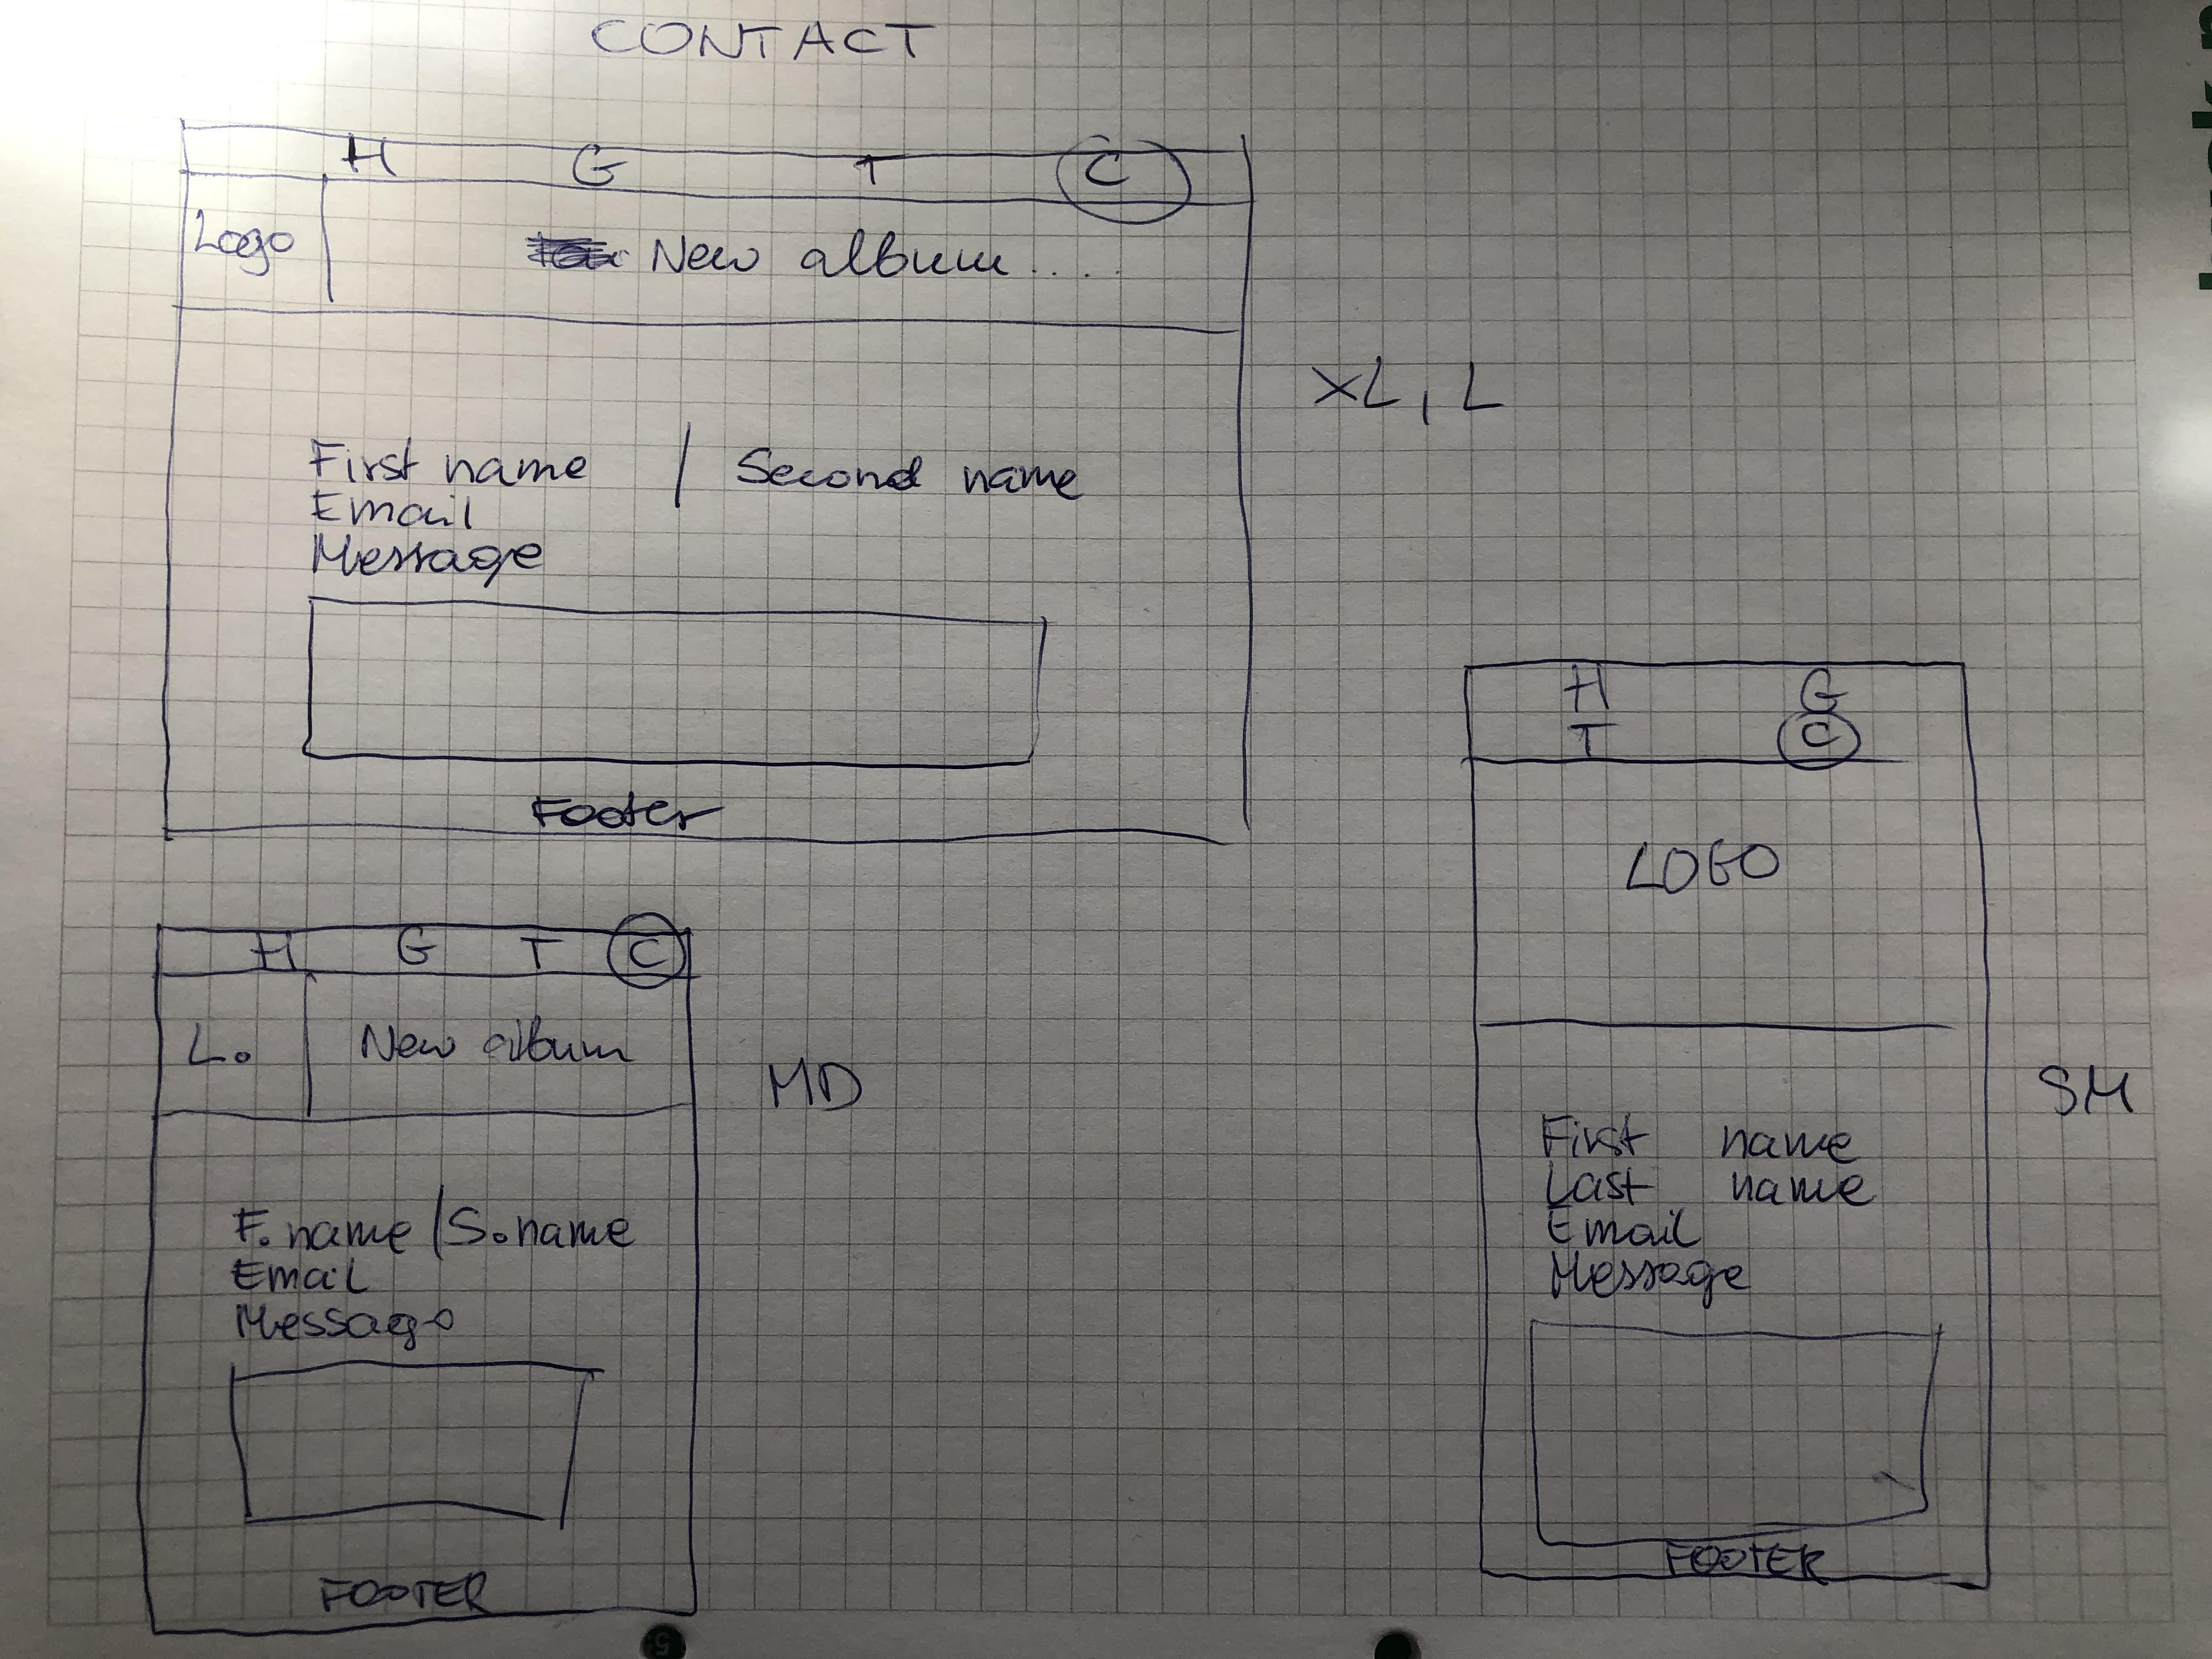 CONTACT
H G T C
Logo New album....
XL, L
First name / Second name
Email
Message
Footer
H G T C
L. New album
MD
F. name / S. name
Email
Message
FOOTER
H G
T C
LOGO
SM
First name
Last name
Email
Message
FOOTER
5